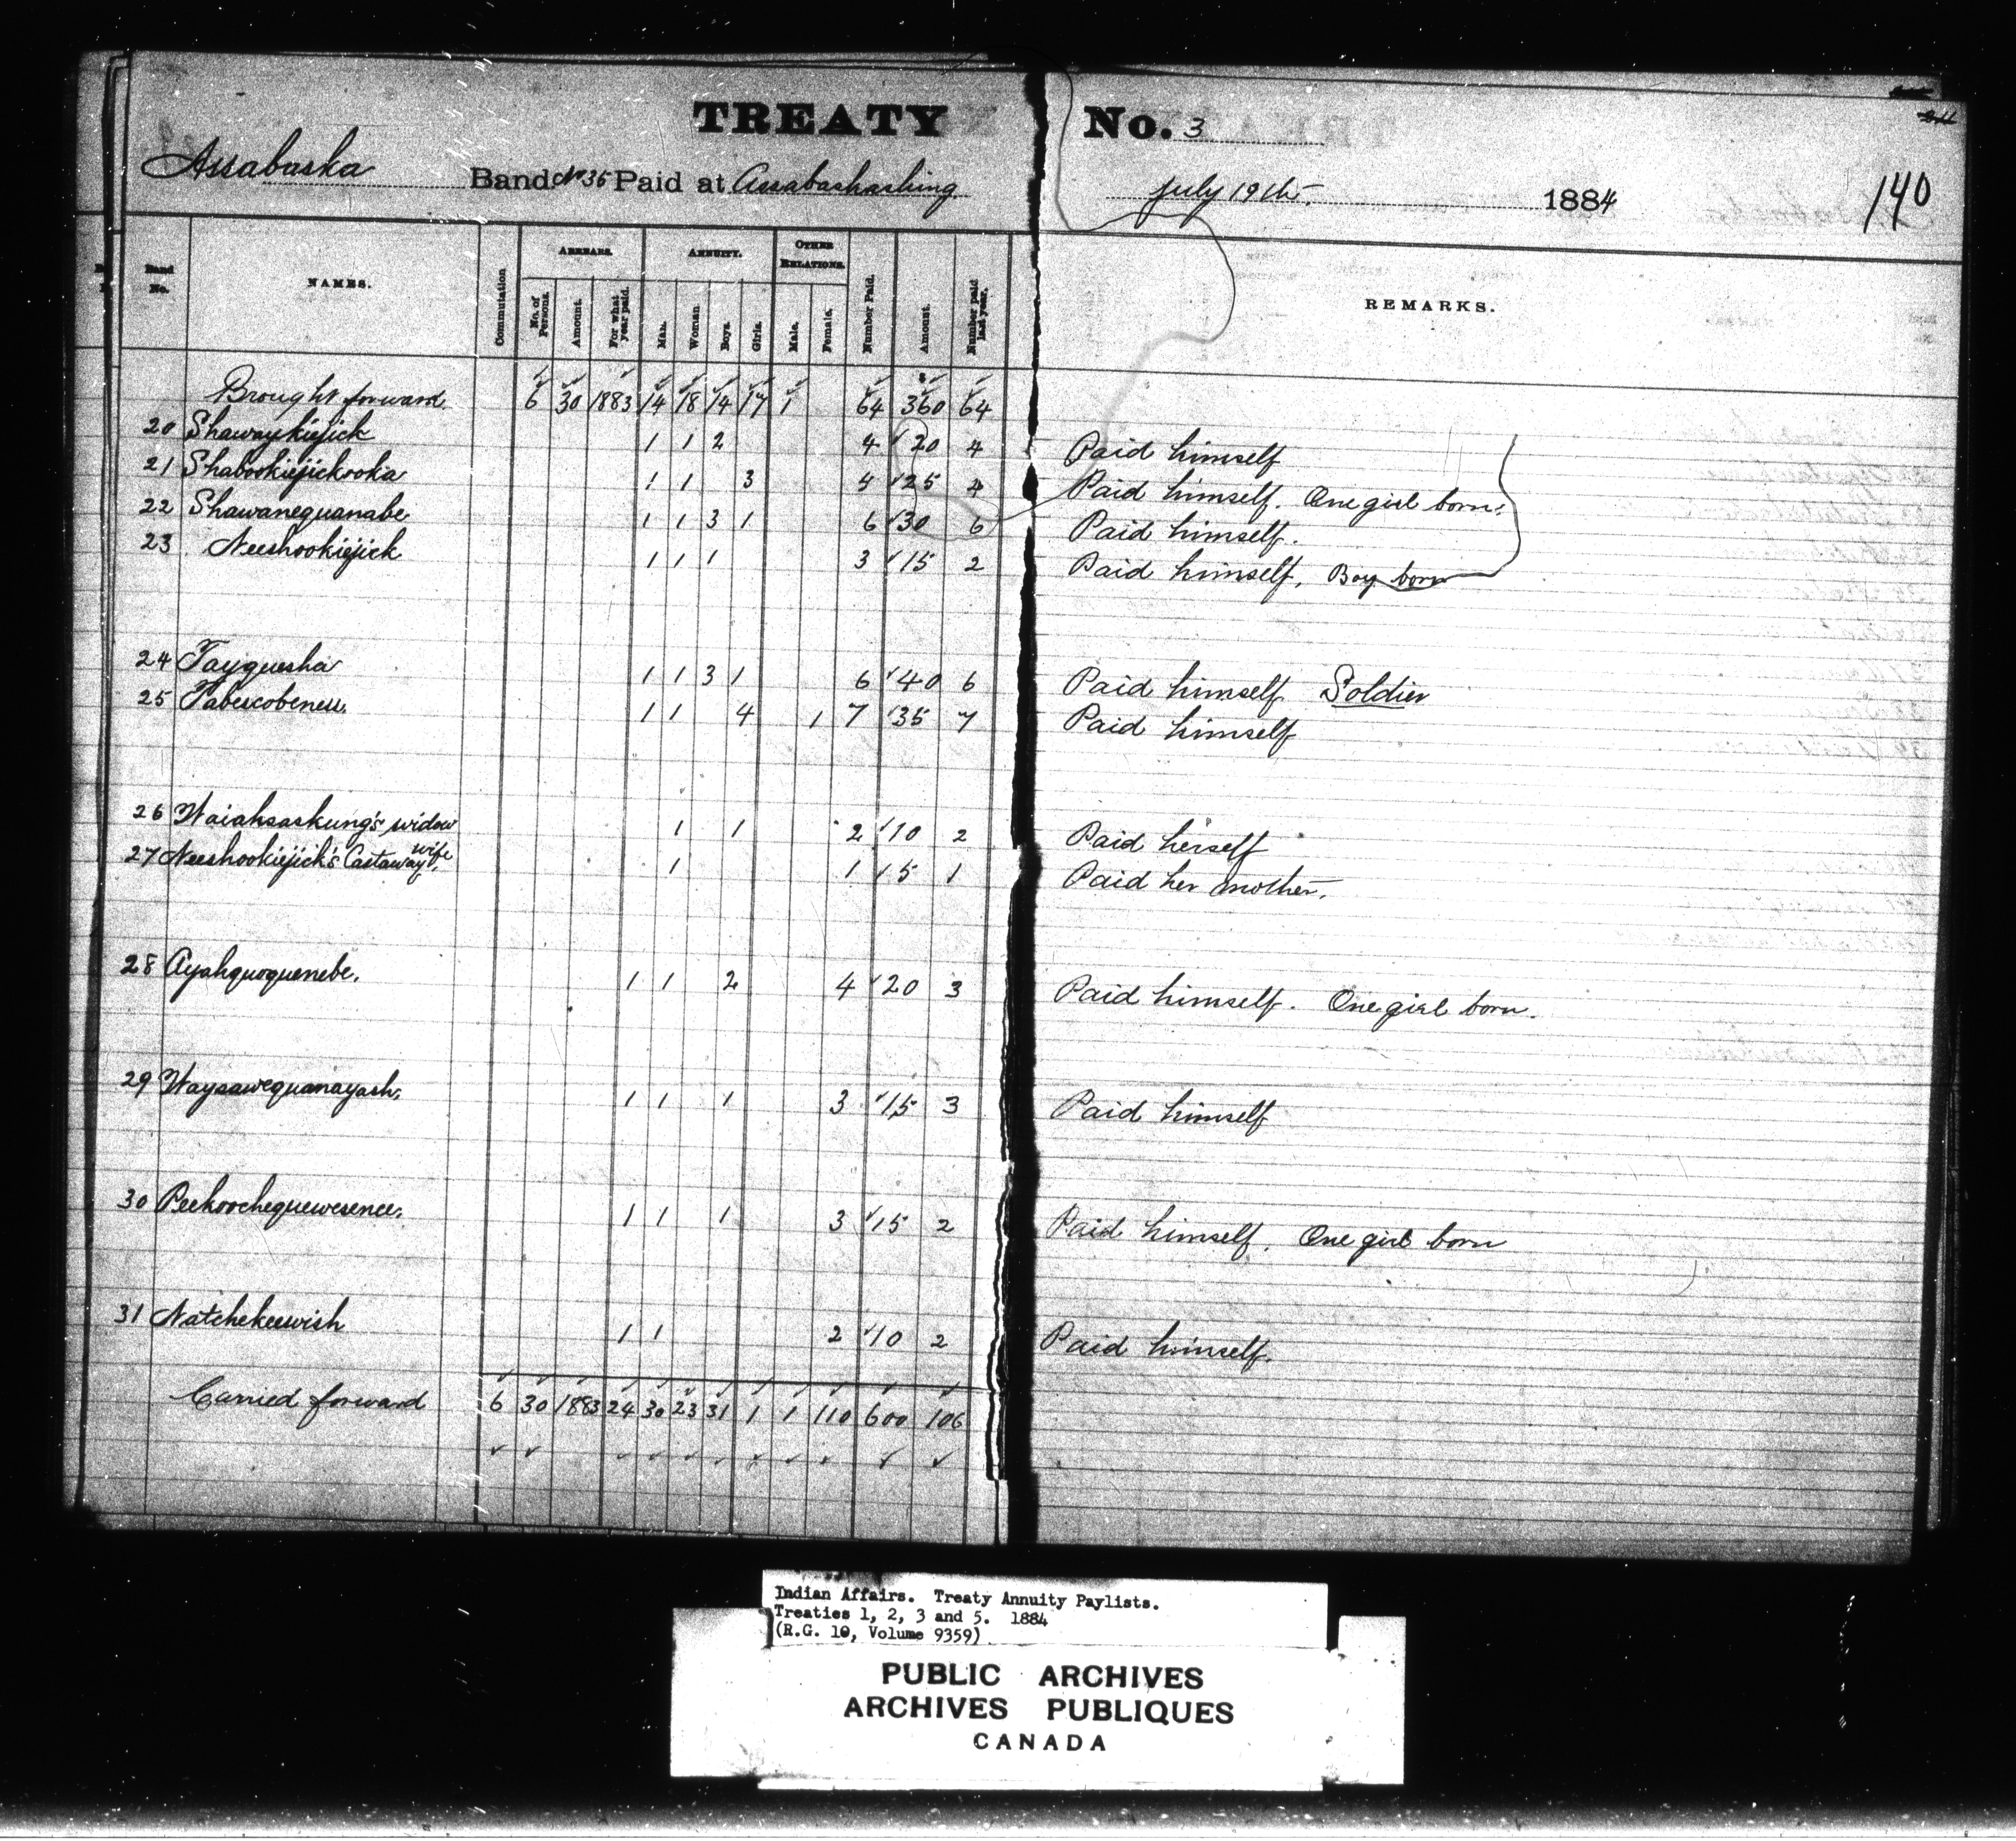 TREATY No. 3
Assabaska Band No 35 Paid at Assabashashing July 19th. 1884 140
Band No. NAMES. Commutation ARREARS. No. of Persons. Amount. For what year paid. ANNUITY. Man. Woman Boys. Girls. OTHER RELATIONS. Male. Female. Number Paid. Amount. Number paid last year. REMARKS.
Brought forward 6 30 1883 14 18 14 17 1 64 360 64
20 Shawaykiejick 1 1 2 4 20 4 Paid himself
21 Shabookiejickooka 1 1 3 5 25 4 Paid himself. One girl born.
22 Shawanequanabe 1 1 3 1 6 30 6 Paid himself.
23 Neeshookiejick 1 1 1 3 15 2 Paid himself, Boy born
24 Tayguesha 1 1 3 1 6 40 6 Paid himself Soldier
25 Tabescobeness. 1 1 4 1 7 35 7 Paid himself
26 Waiahsaskung's widow 1 1 2 10 2 Paid herself
27 Neeshookiejick's Castaway wife. 1 1 5 1 Paid her mother.
28 Ayahquoquenebe. 1 1 2 4 20 3 Paid himself. One girl born.
29 Waysawequanayash. 1 1 1 3 15 3 Paid himself
30 Peekoochequewesence. 1 1 1 3 15 2 Paid himself. One girl born
31 Natchekeewish 1 1 2 10 2 Paid himself.
Carried forward 6 30 1883 24 30 23 31 1 1 110 600 106
Indian Affairs. Treaty Annuity Paylists.
Treaties 1, 2, 3 and 5. 1884
(R.G. 10, Volume 9359)
PUBLIC ARCHIVES
ARCHIVES PUBLIQUES
CANADA